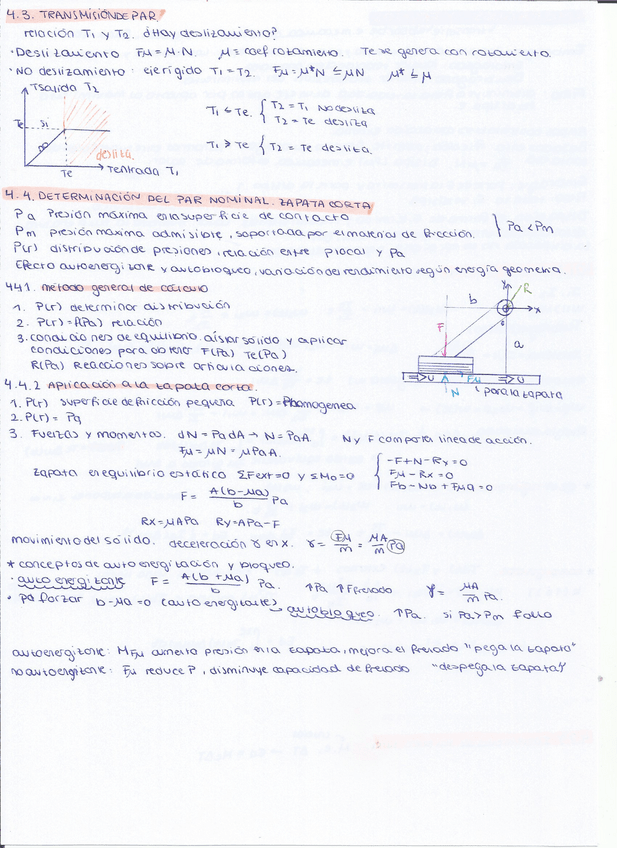 4.3. TRANSMISIÓN DE PAR
relación T1 y T2. ¿Hay deslizamiento?
· Deslizamiento Fμ = μ·N. μ = coef rozamiento. Te se genera con rozamiento.
· No deslizamiento: eje rígido T1 = T2. Fμ = μ*N ≤ μN μ* ≤ μ
Tsalida T2
Te
desliza.
Te
Tentrada T1
T1 < Te. { T2 = T1 No desliza
T2 = Te desliza
T1 ≥ Te { T2 = Te desliza.
4.4. DETERMINACIÓN DEL PAR NOMINAL. ZAPATA CORTA
Pa Presión máxima en la superficie de contacto
Pm presión máxima admisible, soportada por el material de fricción. } Pa < Pm
P(r) distribución de presiones, relación entre p local y Pa
Efecto autoenergizante y autobloqueo, variación del rendimiento según energía geometria.
4.4.1. método general de cálculo
1. P(r) determinar distribución
2. P(r) = f(Pa) relación
3. condiciones de equilibrio. aislar sólido y aplicar
condiciones para obtener F(Pa) Te(Pa)
R(Pa) Reacciones sobre articulaciones.
y
R
b
x
F
a
Fμ
N
para la zapata
4.4.2 Aplicación a la zapata corta.
1. P(r) superficie de fricción pequeña P(r) = P homogenea
2. P(r) = Pa
3. Fuerzas y momentos. dN = Pa dA → N = PaA. N y F comparten linea de acción.
Fμ = μN = μPaA.
Zapata en equilibrio estático ΣFext = 0 y ΣMo = 0 { -F + N - Ry = 0
Fμ - Rx = 0
Fb - Nb + Fμa = 0
F = A(b - μa)/b Pa
Rx = μAPa Ry = APa - F
movimiento del sólido. deceleración γ en x. γ = Fμ/m = μA/m Pa
* conceptos de autoenergización y bloqueo.
· autoenergizante F = A(b + μa)/b Pa. ↑Pa ↑F frenado γ = μA/m Pa.
· Pa forzar b - μa = 0 (autoenergizante) autobloqueo. ↑Pa. si Pa > Pm fallo
autoenergizante: MFμ aumenta presión en la zapata, mejora el frenado "pega la zapata"
no autoenergizante: Fμ reduce P, disminuye capacidad de frenado "despega la zapata"